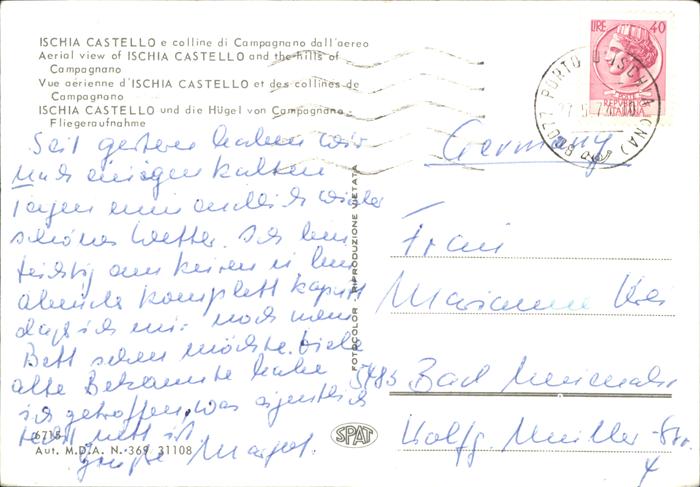 ISCHIA CASTELLO e colline di Campagnano dall'aereo
Aerial view of ISCHIA CASTELLO and the hills of
Campagnano
Vue aérienne d'ISCHIA CASTELLO et des collines de
Campagnano
ISCHIA CASTELLO und die Hügel von Campagnano -
Fliegeraufnahme
Seit gestern haben wir
nach einigen kalten
Tagen nun endlich wieder
schönes Wetter. Ich bin
am kuren u bin
abends komplett kaputt
daß ich nur noch mein
Bett sehen möchte. Viele
alte Bekannte habe
ich getroffen, was eigentlich
sehr nett ist
Grüße Margot.
6715
Aut. M.D.A. N. 369 31108
FOTOCOLOR RIPRODUZIONE VIETATA
SPAT
LIRE 40
POSTE
REPUBBLICA
ITALIANA
80077 PORTO D'ISCHIA (NA)
Germany
Frau
Marianne
5483 Bad Neuenahr
Wolfg. Müller-Str.
4